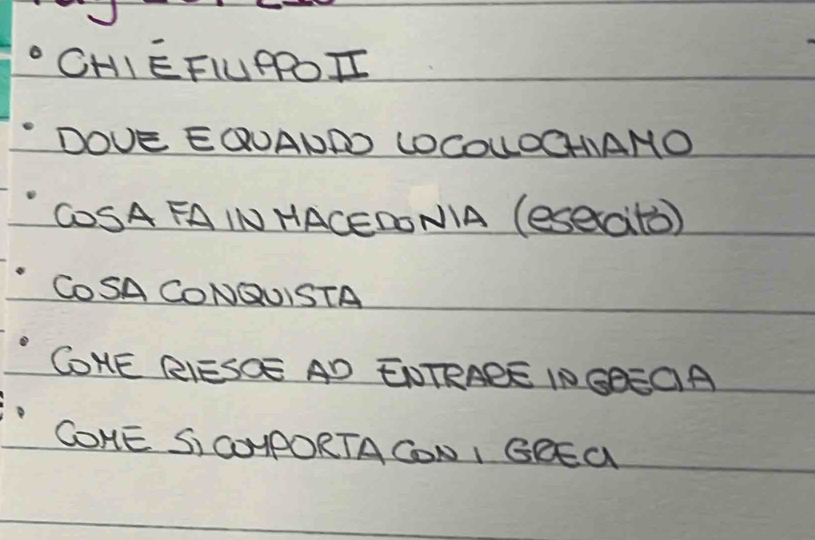 • CHI É FILIPPO II
• DOVE E QUANDO LO COLLOCHIAMO
• COSA FA IN MACEDONIA (esercito)
• COSA CONQUISTA
• COME RIESCE AD ENTRARE IN GRECIA
• COME SI COMPORTA CON I GRECI